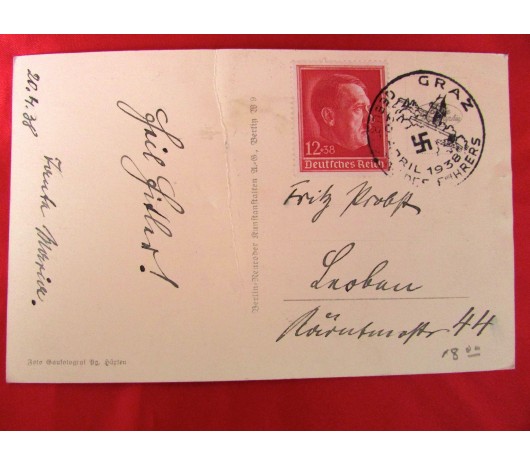 20.4.38
Heil Hitler!
Tante Marie.
12+38
Deutsches Reich
GRAZ
APRIL 1938
DES FÜHRERS
Fritz Probst
Leoben
Kärntnerstr 44
18
Berlin-Neuroder Kunstanstalten A.-G., Berlin W 9
Foto Gaufotograf Pg.